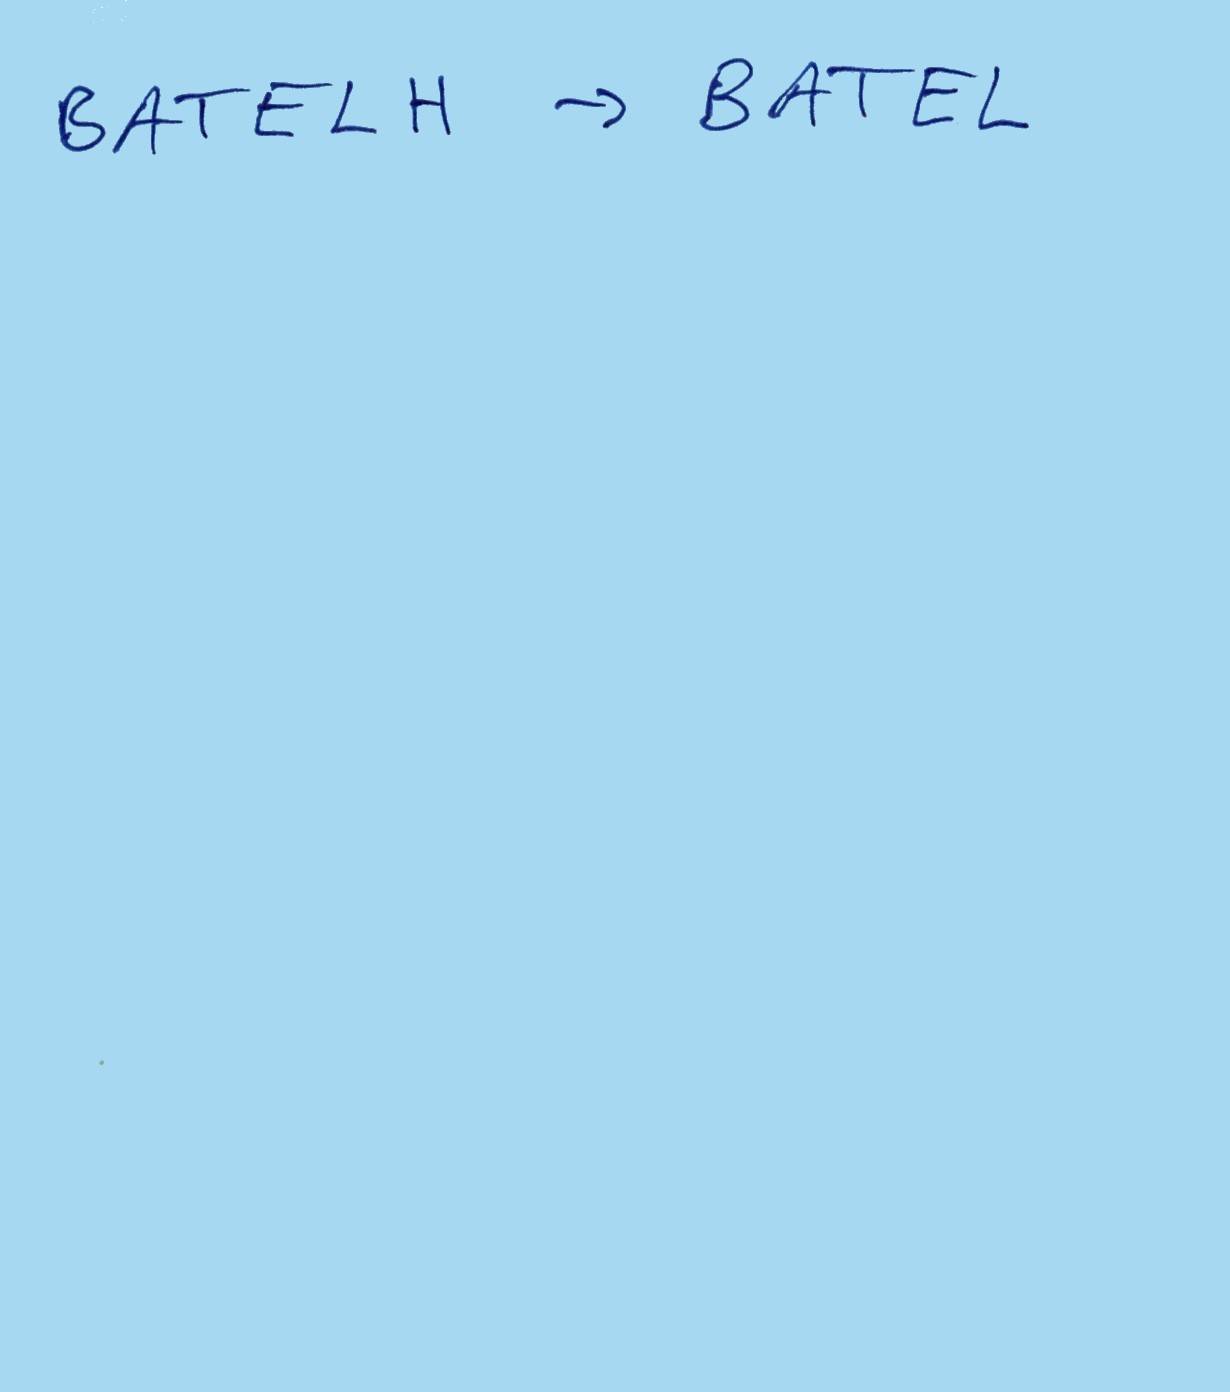 BATELH → BATEL